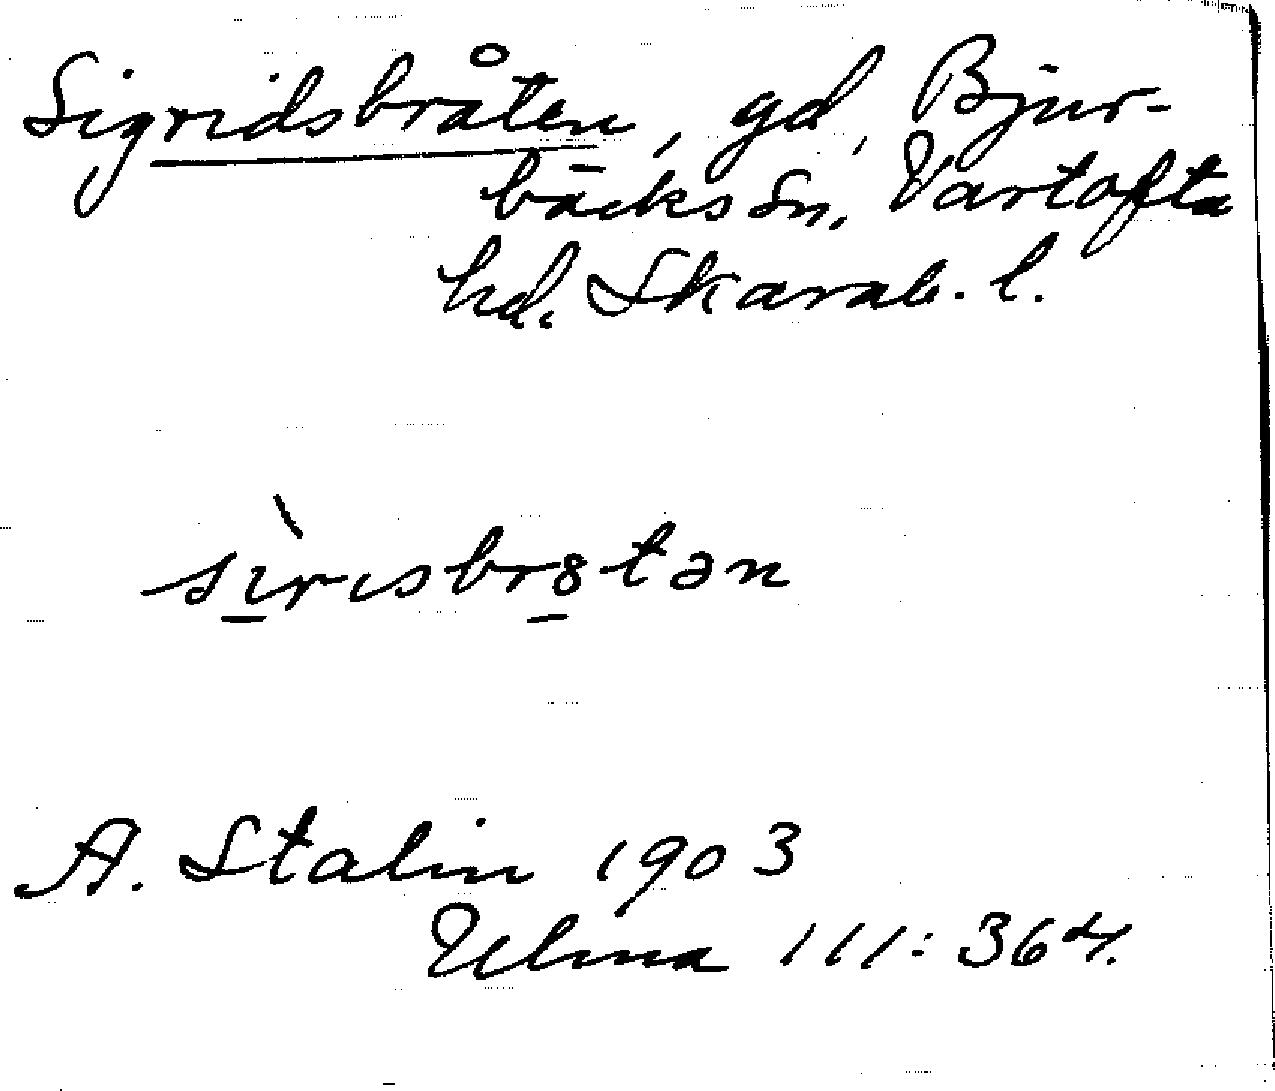 Sigridsbråten, gd, Bjur-
bäcks sn, Vartofta
hd. Skarab. l.
sìrısbr8tən
A. Stalin 1903
Ulma 111:364.